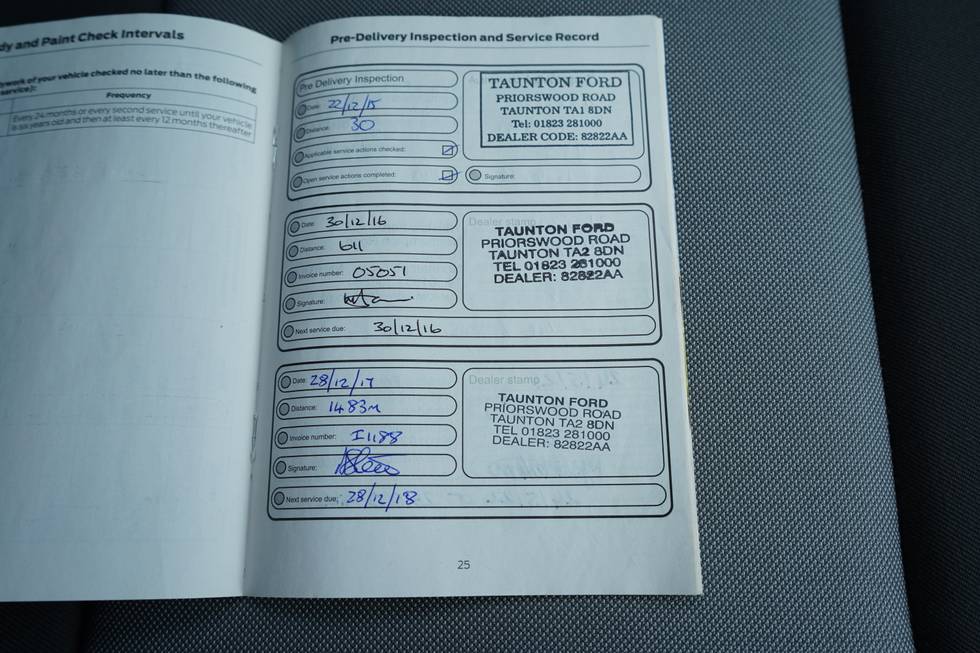 dy and Paint Check Intervals
work of your vehicle checked no later than the following
service):
Frequency
Every 24 months or every second service until your vehicle
is six years old and then at least every 12 months thereafter
Pre-Delivery Inspection and Service Record
Pre Delivery Inspection
Date: 22/12/15
Distance: 30
Applicable service actions checked:
Open service actions completed:
TAUNTON FORD
PRIORSWOOD ROAD
TAUNTON TA1 8DN
Tel: 01823 281000
DEALER CODE: 82822AA
Signature:
Date: 30/12/16
Distance: 611
Invoice number: 05051
Signature:
Next service due: 30/12/16
Dealer stamp
TAUNTON FORD
PRIORSWOOD ROAD
TAUNTON TA2 8DN
TEL 01823 281000
DEALER: 82822AA
Date: 28/12/17
Distance: 1483m
Invoice number: I1188
Signature:
Next service due: 28/12/18
Dealer stamp
TAUNTON FORD
PRIORSWOOD ROAD
TAUNTON TA2 8DN
TEL 01823 281000
DEALER: 82822AA
25